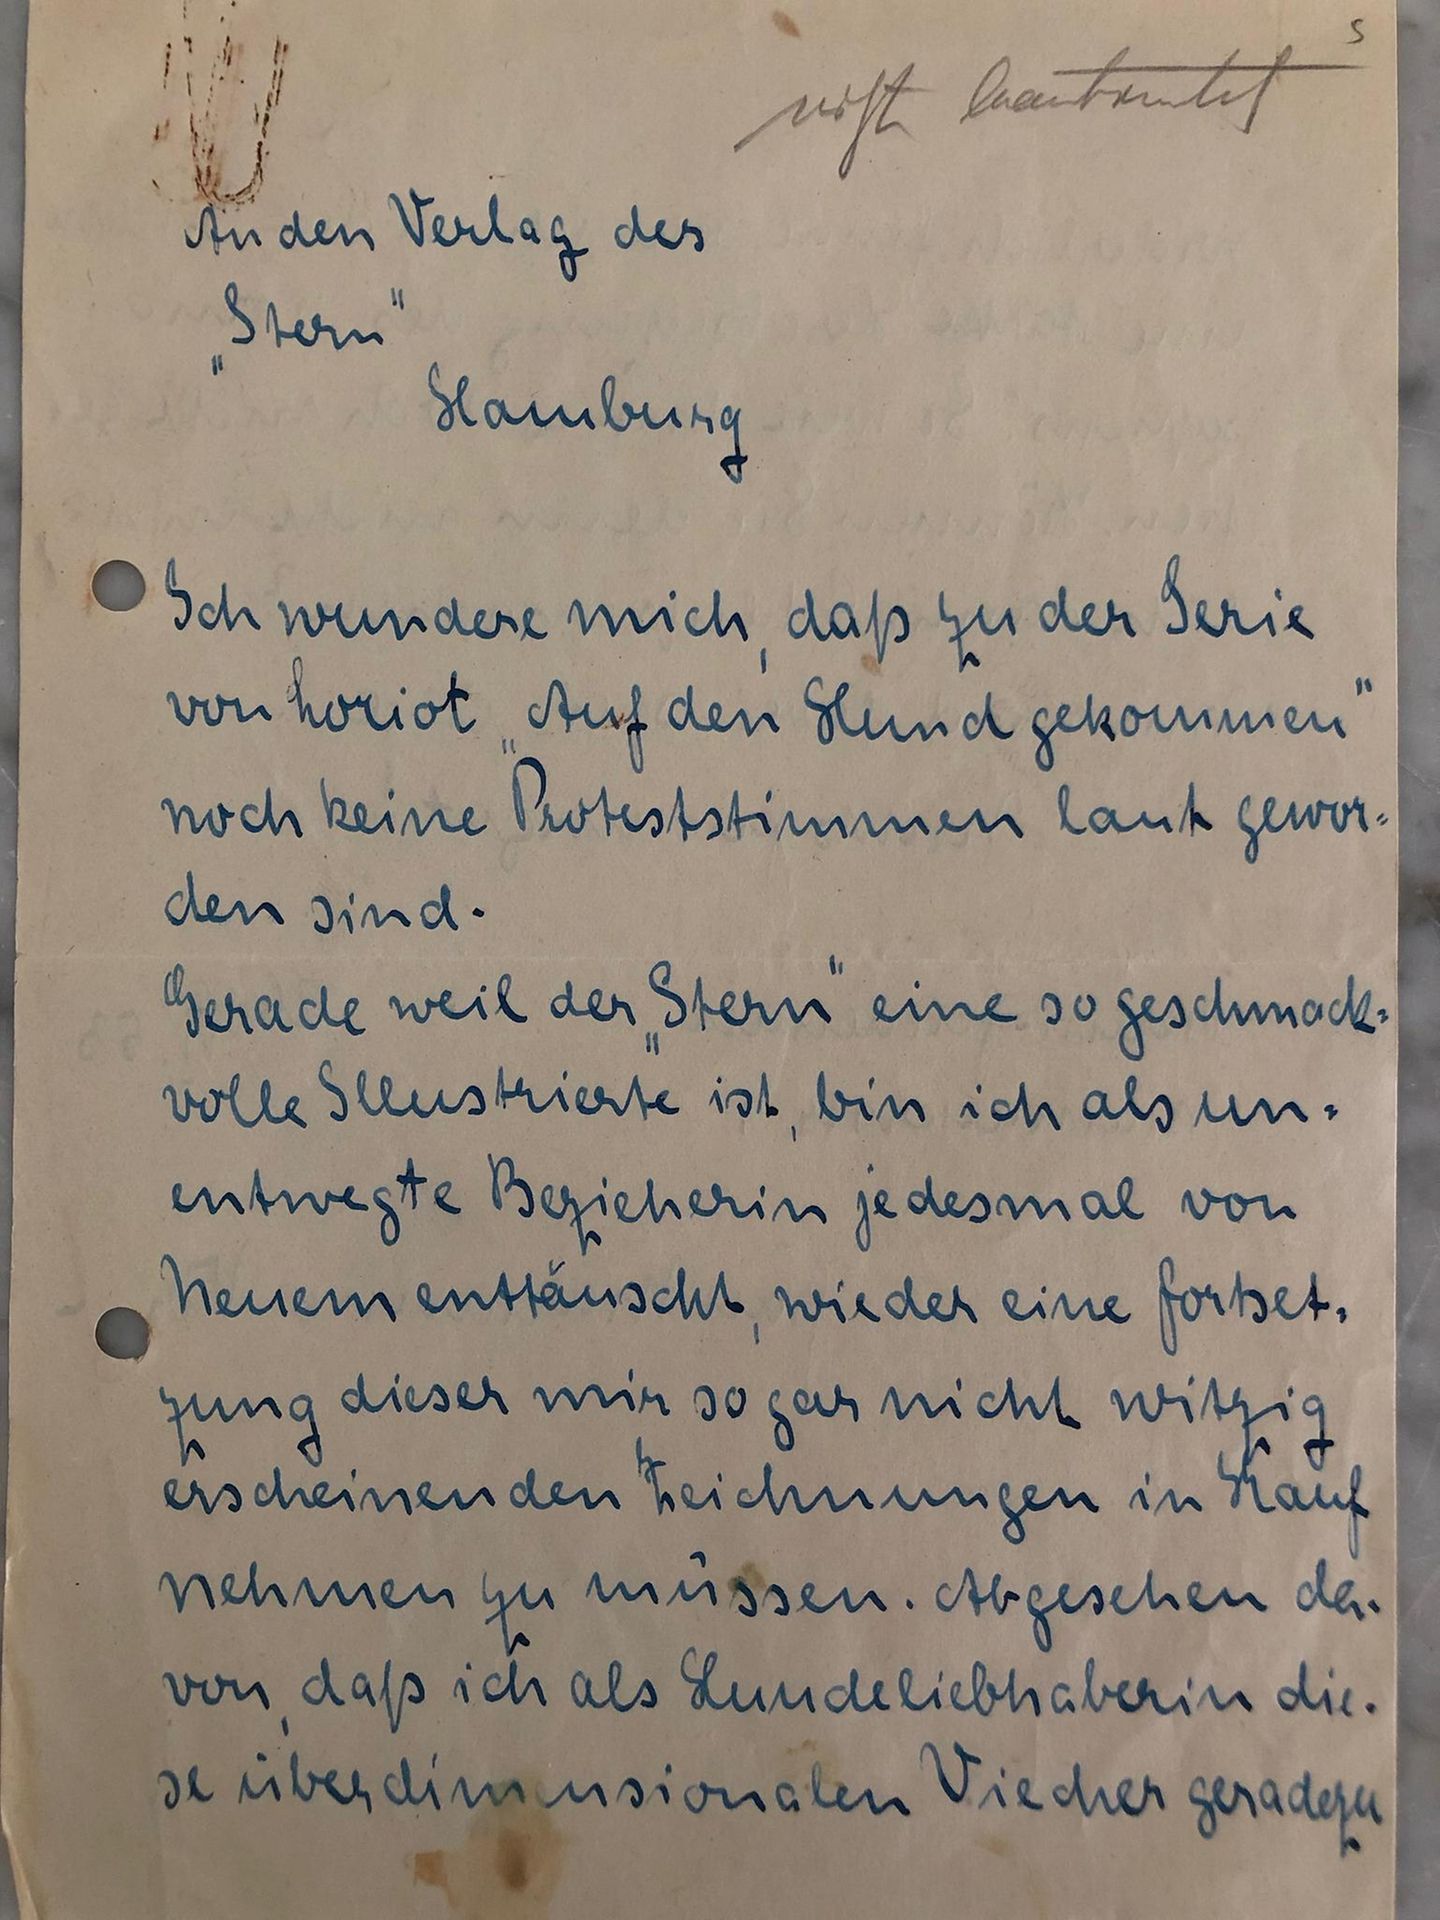 s
nicht beantwortet
An den Verlag des
„Stern"
Hamburg
Ich wundere mich, daß zu der Serie
von Loriot „Auf den Hund gekommen"
noch keine Proteststimmen laut gewor-
den sind.
Gerade weil der „Stern" eine so geschmack-
volle Illustrierte ist, bin ich als un-
entwegte Bezieherin jedesmal von
Neuem enttäuscht, wieder eine Fortset-
zung dieser mir so gar nicht witzig
erscheinenden Zeichnungen in Kauf
nehmen zu müssen. Abgesehen da-
von, daß ich als Hundeliebhaberin die-
se überdimensionalen Viecher geradezu